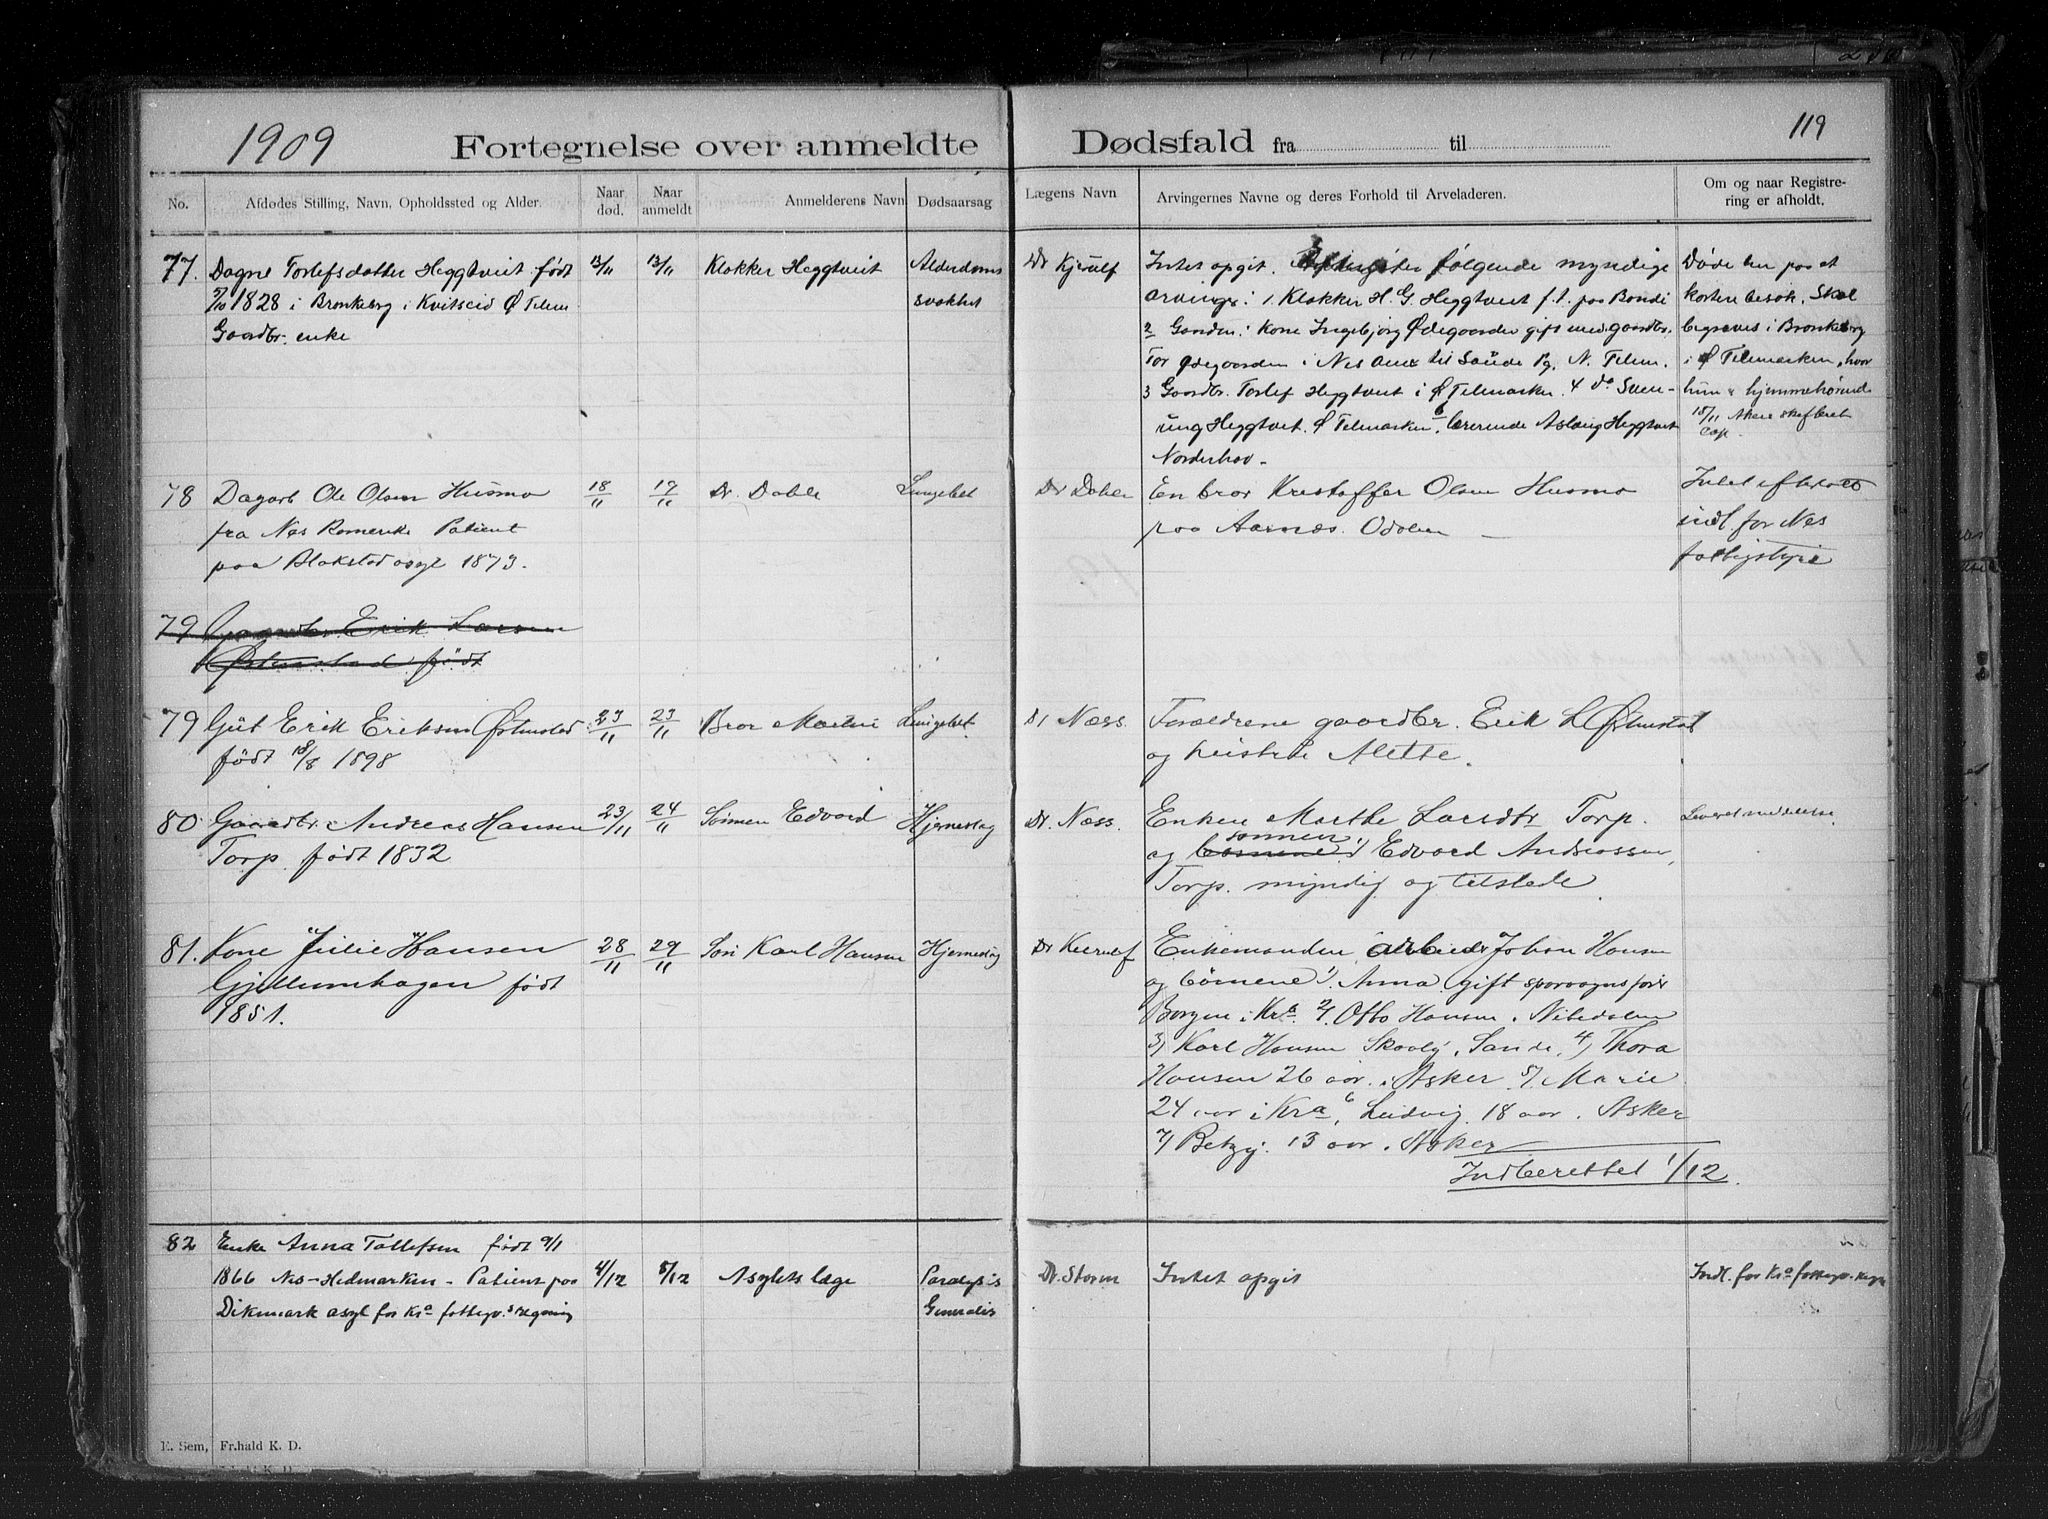 1909 Fortegnelse over anmeldte Dødsfald fra til 119
No. Afdødes Stilling, Navn, Opholdssted og Alder. Naar død. Naar anmeldt Anmelderens Navn Dødsaarsag Lægens Navn Arvingernes Navne og deres Forhold til Arveladeren. Om og naar Registrering er afholdt.
77. Dagne Torlefsdatter Heggtveit født 13/11 13/11 Klokker Heggtveit Alderdoms Dr Kjerulf Intet opgit. følgende myndige Døde her paa et
5/10 1828 i Brunkeberg i Kvitseid Ø Telem svakhet arvinger: 1. Klokker H. G. Heggtveit f. t. paa Bondi kortere besøk. Skal
Gaardbr. enke 2 Kone Ingebjørg Ødegaarden gift med gaardbr. begraves i Brunkeberg
Tor Ødegaarden i Nes Anex til Saude Pg. N. Telem. i Ø Telemarken, hvor
3 Gaardbr. Torlef Heggtveit i Ø Telemarken. 4 do Sven- hun e hjemmehørende
ung Heggtveit. Ø Telemarken, 6 lærerinde Aslaug Heggtveit 15/11 Akers skifteret
Norderhov - cop.
78 Dagarb Ole Olsen Husmo 18/11 17/11 Dr. Doble Lungebet Dr Doble En bror Kristoffer Olsen Husmo Intet efterladt
fra Nes Romerike Patient paa Aarnæs. Odalen indl for Nes
paa Blakstad asyl 1873. fattigstyre
79 Gaardbr. Erik Larsen
Østenstad født
79 Gut Erik Eriksen Østenstad 23/11 23/11 Bror Martin Lungebet. Dr Næss. Forældrene gaardbr. Erik L Østenstad
født 18/8 1898 og hustru Alette.
80 Gaardbr. Andreas Hansen 23/11 24/11 Sønnen Edvard Hjerneslag Dr. Næss. Enken Marthe Larsdtr Torp. Leveret meddelelse
Torp. født 1832 og børnene sønnen 1) Edvard Andreassen,
Torp. myndig og tilstede.
81. Kone Julie Hansen 28/11 29/11 Søn Karl Hansen Hjerneslag Dr Kierulf Enkemanden, arbeider Johan Hansen
Gjellumhagen født og børnene 1. Anna gift sporvognsfører
1851. Borgen i Kra. 2/. Otto Hansen. Nitedalen
3) Karl Hansen Skovly, Sande, 4) Thora
Hansen 26 aar. i Asker 5/ Marie
24 aar i Kra, 6 Ludvig 18 aar. Asker
7/ Betzy. 13 aar. Asker
Indberettet 1/12.
82 Enke Anna Tollefsen født 9/1
1866 Nes-Hedmarken - Patient paa 4/12 5/12 Asylets læge Paralysis Dr. Storm Intet opgit Indl. for Kra fattigv. regn
Dikemark asyl for Kra fattigv.s regning Generalis
E. Sem, Fr.hald K. D.